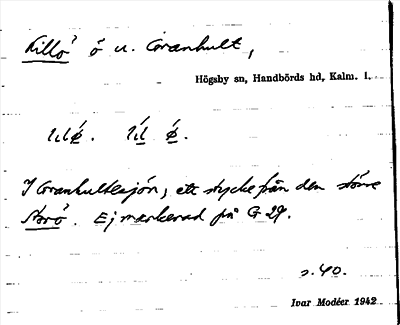 Killö ö u. Granhult,
Högsby sn, Handbörds hd, Kalm. l.
I Granhultesjön, ett stycke från den större
Norö. Ej markerad på G 29.
s. 40.
Ivar Modéer 1942